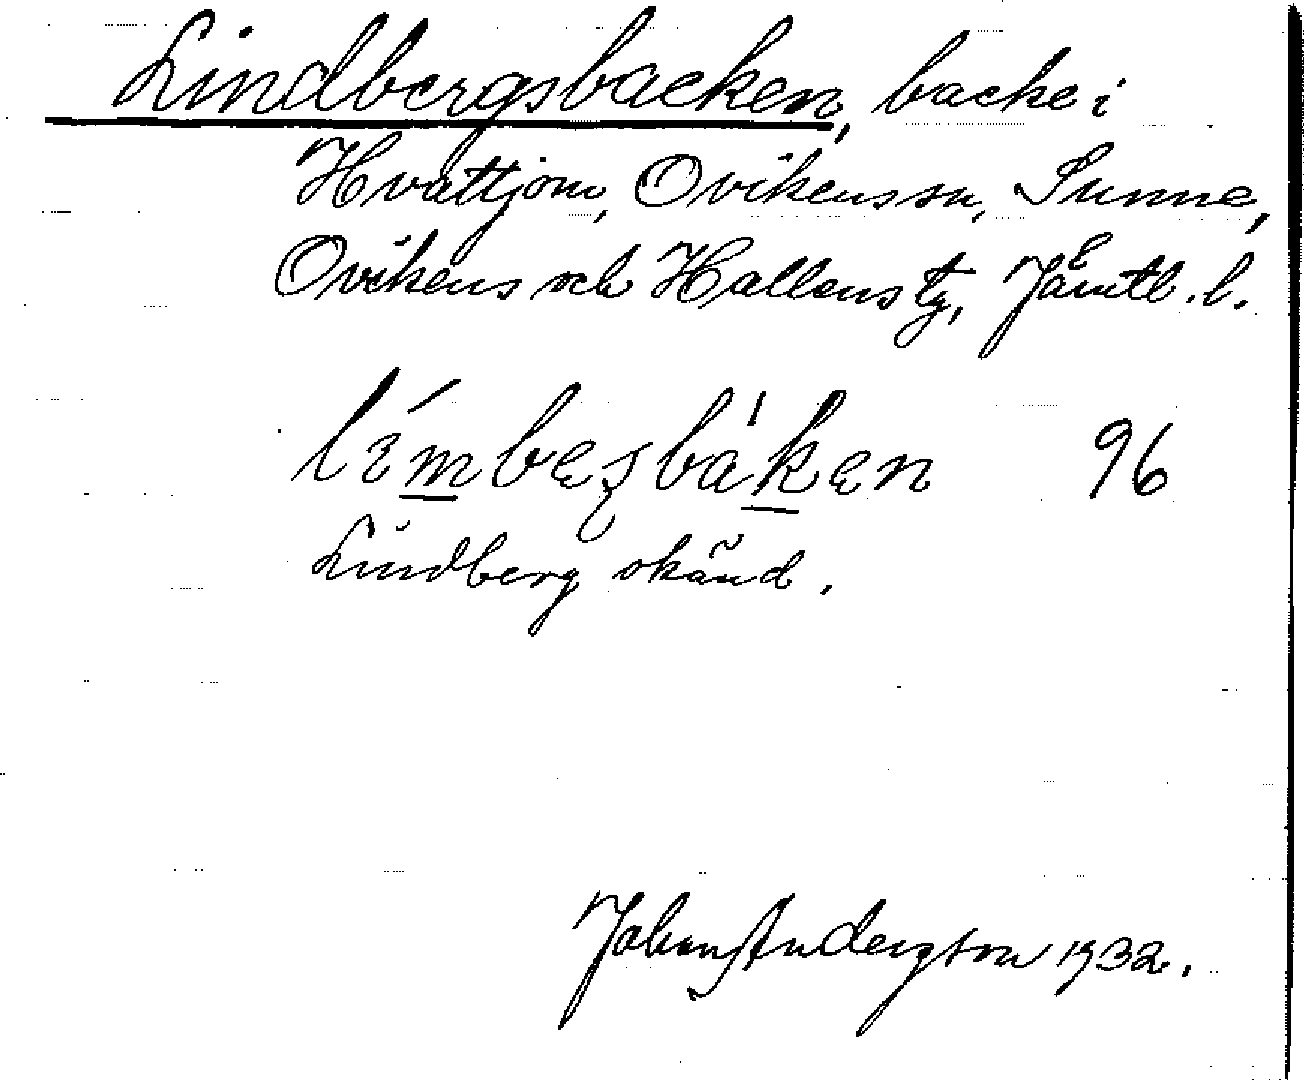 Lindbergsbacken, backe i
Hvattjom, Ovikens sn, Sunne,
Ovikens och Hallens tg, Jämtl. l.
límbesbáken 96
Lindberg okänd.
Johan Anderson 1932.